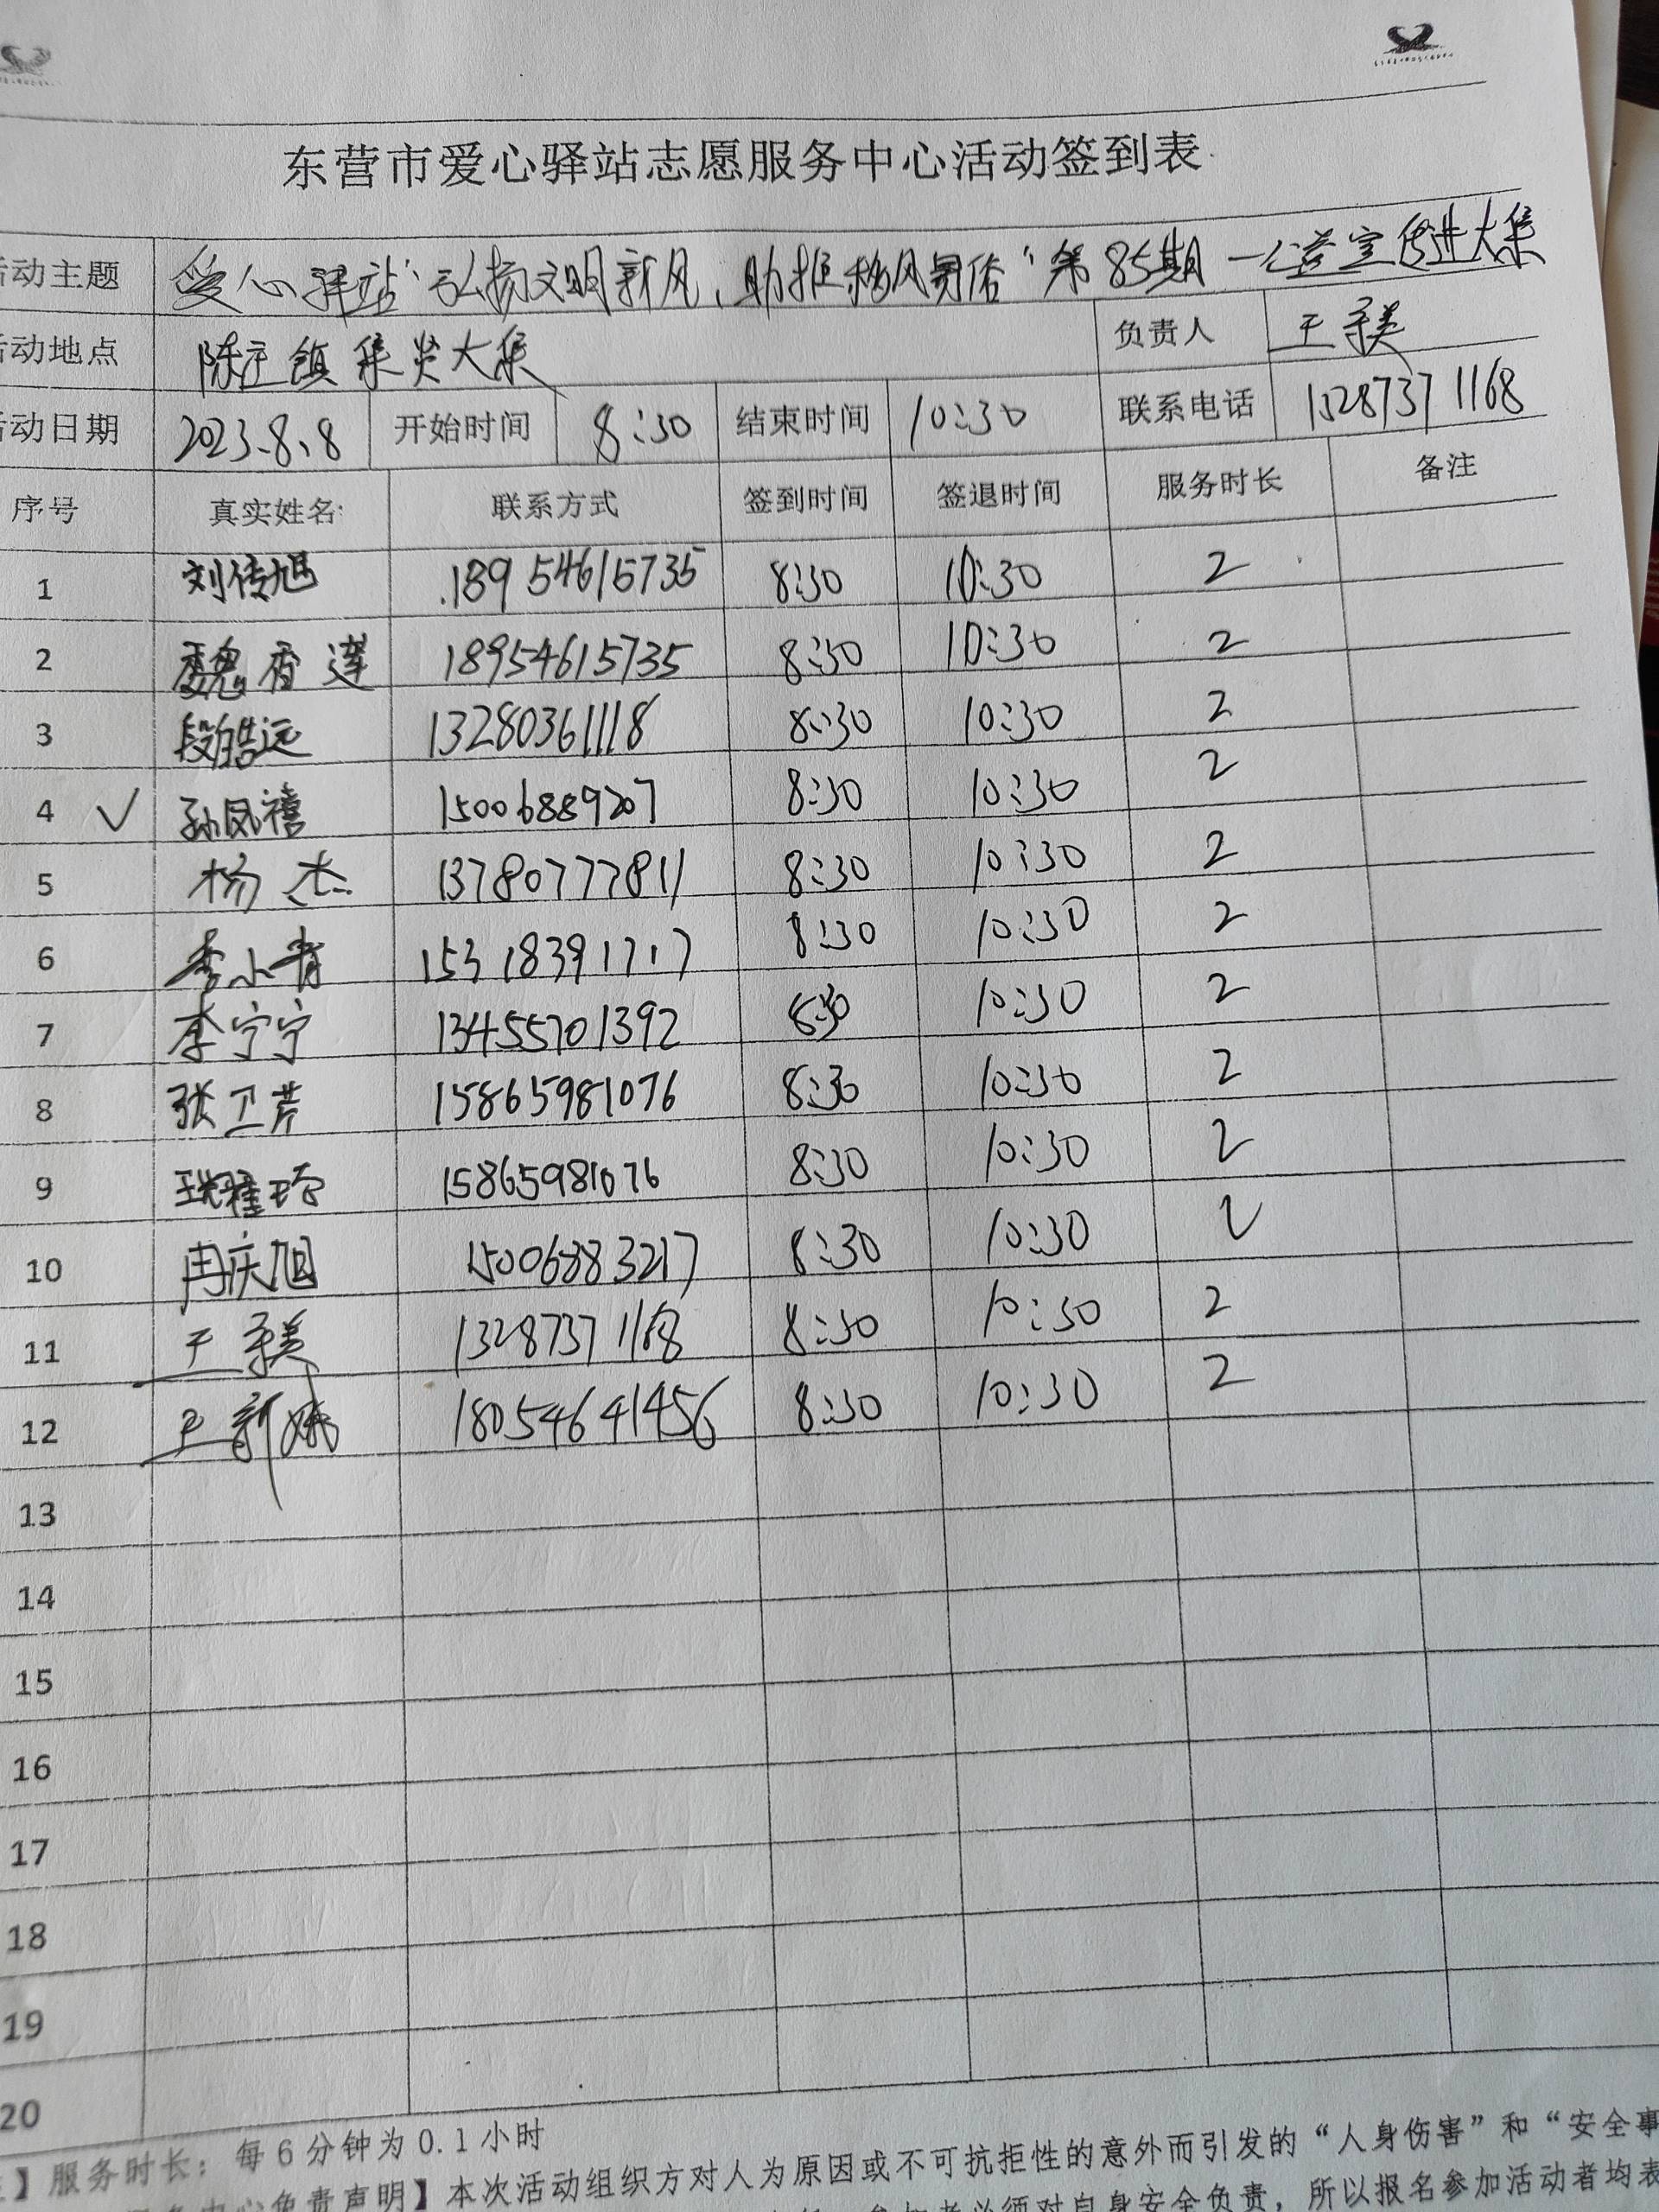 东营市爱心驿站志愿服务中心活动签到表
动主题 爱心驿站"弘扬文明新风、助推移风易俗"第85期—公益宣传进大集
动地点 陈庄镇集贤大集 负责人 王
动日期 2023.8.8 开始时间 8:30 结束时间 10:30 联系电话 13287371168
序号 真实姓名 联系方式 签到时间 签退时间 服务时长 备注
1 刘传旭 18954615735 8:30 10:30 2
2 魏香莲 18954615735 8:30 10:30 2
3 段皓远 13280361118 8:30 10:30 2
4 ✓ 孙凤禧 15006889207 8:30 10:30 2
5 杨杰 13780777811 8:30 10:30 2
6 李小青 15318391717 8:30 10:30 2
7 李宁宁 13455701392 8:30 10:30 2
8 张卫芹 15865981076 8:30 10:30 2
9 15865981076 8:30 10:30 2
10 冉庆旭 15006883217 8:30 10:30 2
11 王 13287371168 8:30 10:30 2
12 王新娥 18054641456 8:30 10:30 2
13
14
15
16
17
18
19
20
】服务时长：每6分钟为0.1小时
免责声明】本次活动组织方对人为原因或不可抗拒性的意外而引发的“人身伤害”和“安全事
必须对自身安全负责，所以报名参加活动者均表